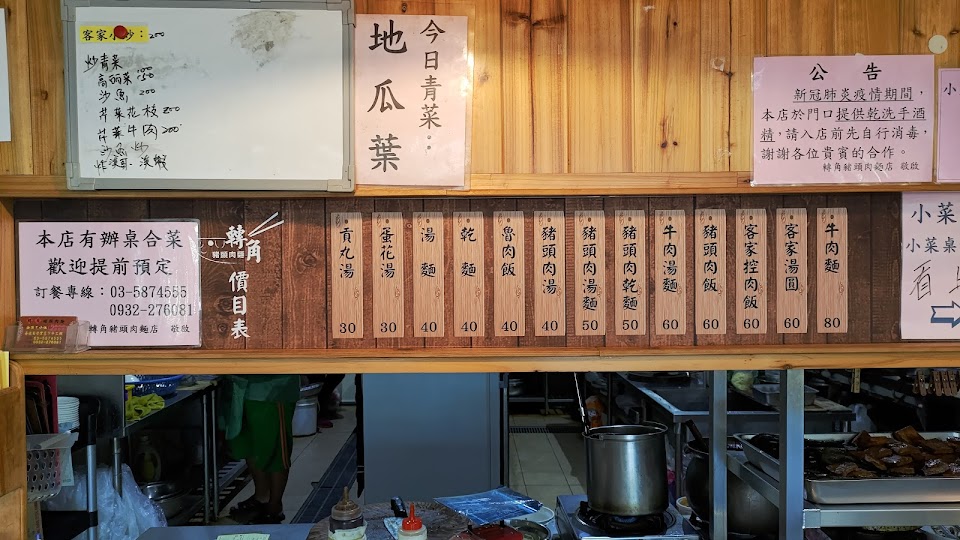 客家小炒：200
炒青菜
高麗菜 150
沙魚 200
芹菜花枝 200
芹菜牛肉 200
沙魚炒
炸溪哥、溪蝦
今日青菜：
地瓜葉
公告
新冠肺炎疫情期間，
本店於門口提供乾洗手酒
精，請入店前先自行消毒，
謝謝各位貴賓的合作。
轉角豬頭肉麵店 敬啟
本店有辦桌合菜
歡迎提前預定
訂餐專線：03-5874555
0932-276081
轉角豬頭肉麵店 敬啟
轉角
豬頭肉麵
價目表
貢丸湯 30
蛋花湯 30
湯麵 40
乾麵 40
魯肉飯 40
豬頭肉湯 40
豬頭肉湯麵 50
豬頭肉乾麵 50
牛肉湯麵 60
豬頭肉飯 60
客家控肉飯 60
客家湯圓 60
牛肉麵 80
小菜
小菜桌
小